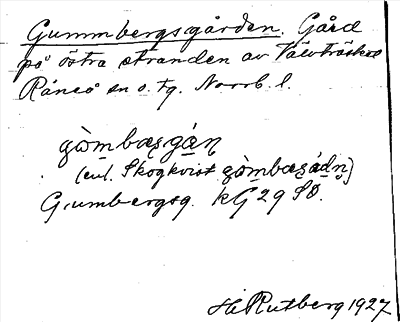 Gummbergsgården. Gård
på östra stranden av Tälvträsket
Råneå sn o. tg. Norrb. l.
gòmbæsgáṇ
(enl. Skogkvist gòmbæsádṇ)
Gumbergsg. kG 29 SO.
H. Rutberg 1927